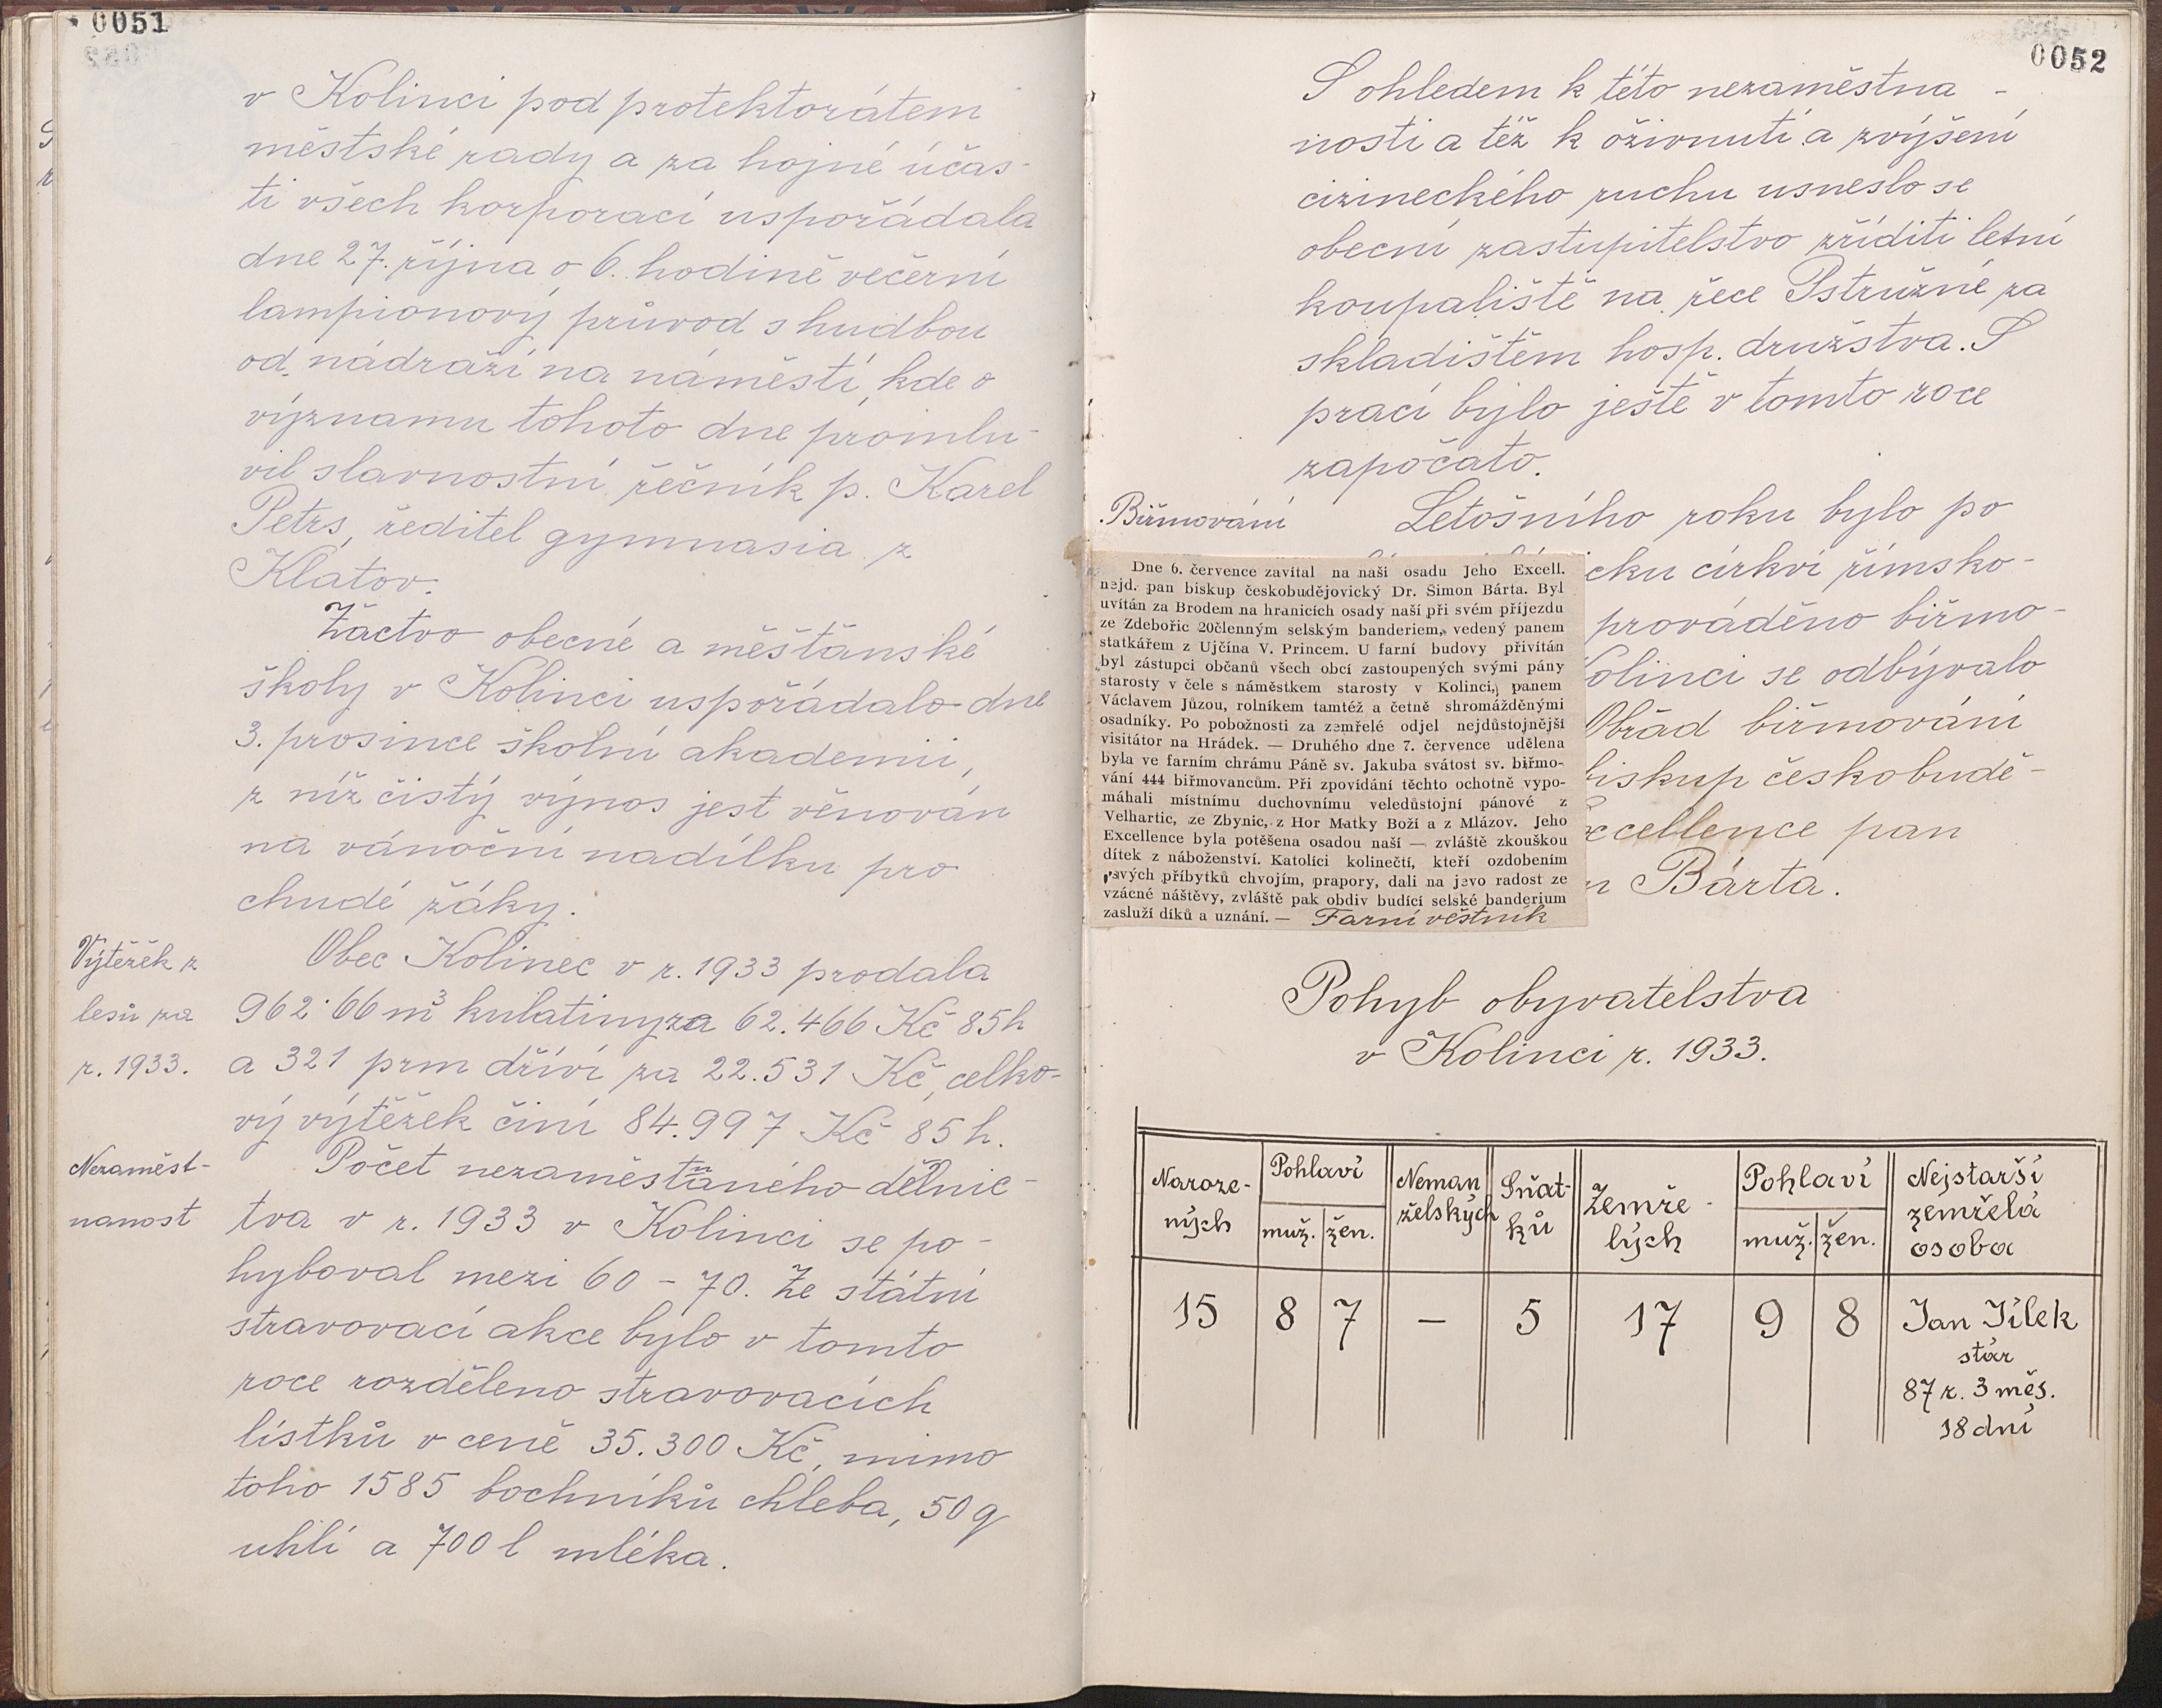 0051
v Kolinci pod protektorátem
městské rady a za hojné účas-
ti všech korporací uspořádala
dne 27. října o 6. hodině večerní
lampionový průvod s hudbou
od nádraží na náměstí, kde o
významu tohoto dne promlu-
vil slavnostní řečník p. Karel
Petrs, ředitel gymnasia z
Klatov.
Žactvo obecné a měšťanské
školy v Kolinci uspořádalo dne
3. prosince školní akademii,
z níž čistý výnos jest věnován
na vánoční nadílku pro
chudé žáky.
Výtěžek z
lesů za
r. 1933.
Obec Kolinec v r. 1933 prodala
962·66 m³ kulatiny za 62.466 Kč 85 h
a 321 prm dříví za 22.531 Kč, celko-
vý výtěžek činí 84.997 Kč 85 h.
Nezaměst-
nanost
Počet nezaměstnaného dělnic-
tva v r. 1933 v Kolinci se po-
hyboval mezi 60 - 70. Ze státní
stravovací akce bylo v tomto
roce rozděleno stravovacích
lístků v ceně 35.300 Kč, mimo
toho 1585 bochníků chleba, 50 q
uhlí a 700 l mléka.
0052
S ohledem k této nezaměstna-
nosti a též k oživnutí a zvýšení
cizineckého ruchu usneslo se
obecní zastupitelstvo zříditi letní
koupaliště na řece Pstružné za
skladištěm hosp. družstva. S
prací bylo ještě v tomto roce
započato.
Biřmování
Letošního roku bylo po
cku církví římsko-
prováděno biřmo-
olinci se odbývalo
Obřad biřmování
biskup českobudě-
xcellence pan
n Bárta.
Dne 6. července zavítal na naši osadu Jeho Excell.
nejd. pan biskup českobudějovický Dr. Šimon Bárta. Byl
uvítán za Brodem na hranicích osady naší při svém příjezdu
ze Zdebořic 20členným selským banderiem, vedený panem
statkářem z Ujčína V. Princem. U farní budovy přivítán
byl zástupci občanů všech obcí zastoupených svými pány
starosty v čele s náměstkem starosty v Kolinci, panem
Václavem Jůzou, rolníkem tamtéž a četně shromážděnými
osadníky. Po pobožnosti za zemřelé odjel nejdůstojnější
visitátor na Hrádek. — Druhého dne 7. července udělena
byla ve farním chrámu Páně sv. Jakuba svátost sv. biřmo-
vání 444 biřmovancům. Při zpovídání těchto ochotně vypo-
máhali místnímu duchovnímu veledůstojní pánové z
Velhartic, ze Zbynic, z Hor Matky Boží a z Mlázov. Jeho
Excellence byla potěšena osadou naší — zvláště zkouškou
dítek z náboženství. Katolíci kolinečtí, kteří ozdobením
svých příbytků chvojím, prapory, dali na jevo radost ze
vzácné náštěvy, zvláště pak obdiv budící selské banderium
zasluží díků a uznání. — Farní věstník
Pohyb obyvatelstva
v Kolinci r. 1933.
Naroze-
ných
Pohlaví
muž. žen.
Neman
želských
Sňat-
ků
Zemře-
lých
Pohlaví
muž. žen.
Nejstarší
zemřelá
osoba
15 8 7 — 5 17 9 8 Jan Jílek
stár
87 r. 3 měs.
18 dní